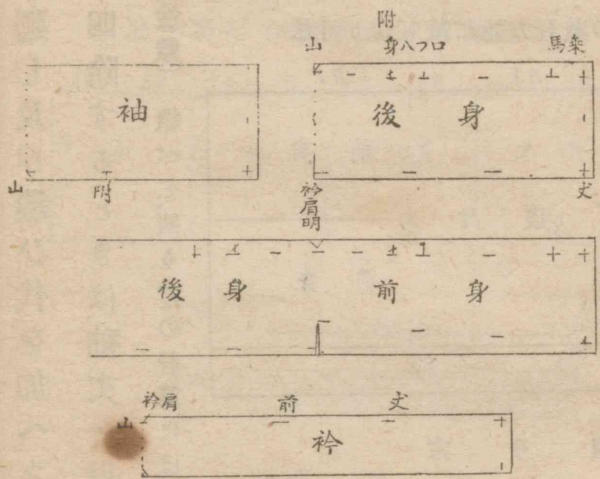 附
山 身八ツ口 馬乗
袖 後身
山 附 衿肩明 丈
後身 前身
衿肩 前 丈
山
衿